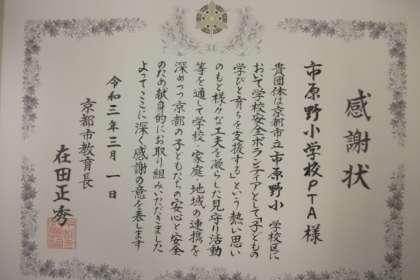 感謝状
市原野小学校PTA 様
貴団体は京都市立市原野小学校区に
おいて学校安全ボランティアとして「子どもの
学びと育ちを支援する」という熱い思い
のもと様々な工夫を凝らした見守り活動
等を通して学校・家庭・地域の連携を
深めつつ京都の子どもたちの安心と安全
のため献身的にお取り組みいただきました
よってここに深く感謝の意を表します
令和三年三月一日
京都市教育長
在田正秀